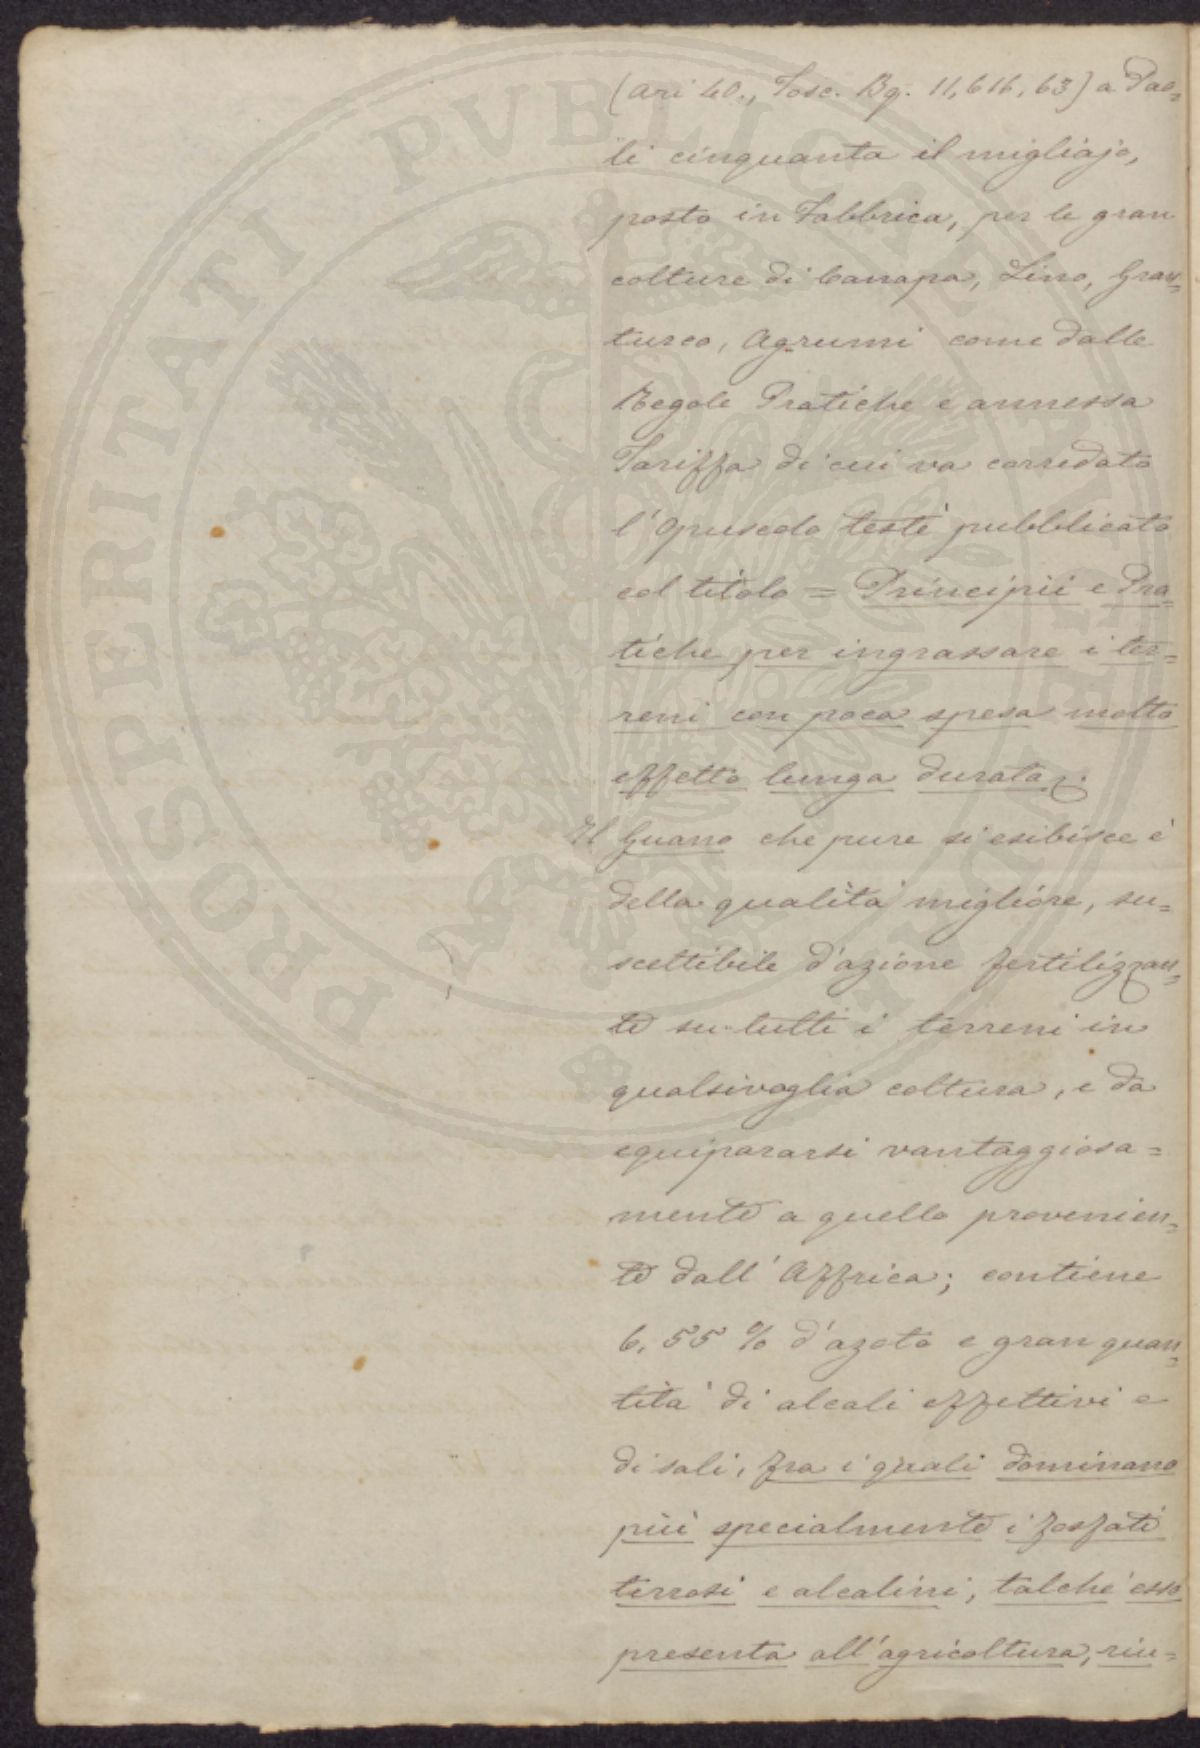 (ari 40., Tosc. Bq. 11,616,63) a Pao=
li cinquanta il migliajo,
posto in Fabbrica, per le gran
colture di Canapa, Lino, Gran=
turco, Agrumi come dalle
Regole Pratiche e annessa
Tariffa di cui va corredato
l'Opuscolo testè pubblicato
col titolo = Principii e Pra
tiche per ingrassare i ter=
reni con poca spesa molto
effetto lunga durata.
Il Guano che pure si esibisce è
della qualità migliore, su=
scettibile d'azione fertilizzan=
te su tutti i terreni in
qualsivoglia coltura, e da
equipararsi vantaggiosa=
mente a quello provenien=
te dall'Affrica; contiene
6,55 % d'azoto e gran quan=
tità di alcali effettivi e
di sali, fra i quali dominano
più specialmente i fosfati
terrosi e alcalini, talchè esso
presenta all'agricoltura, riu=
PROSPERITATI PVBLICAE AVGENDAE